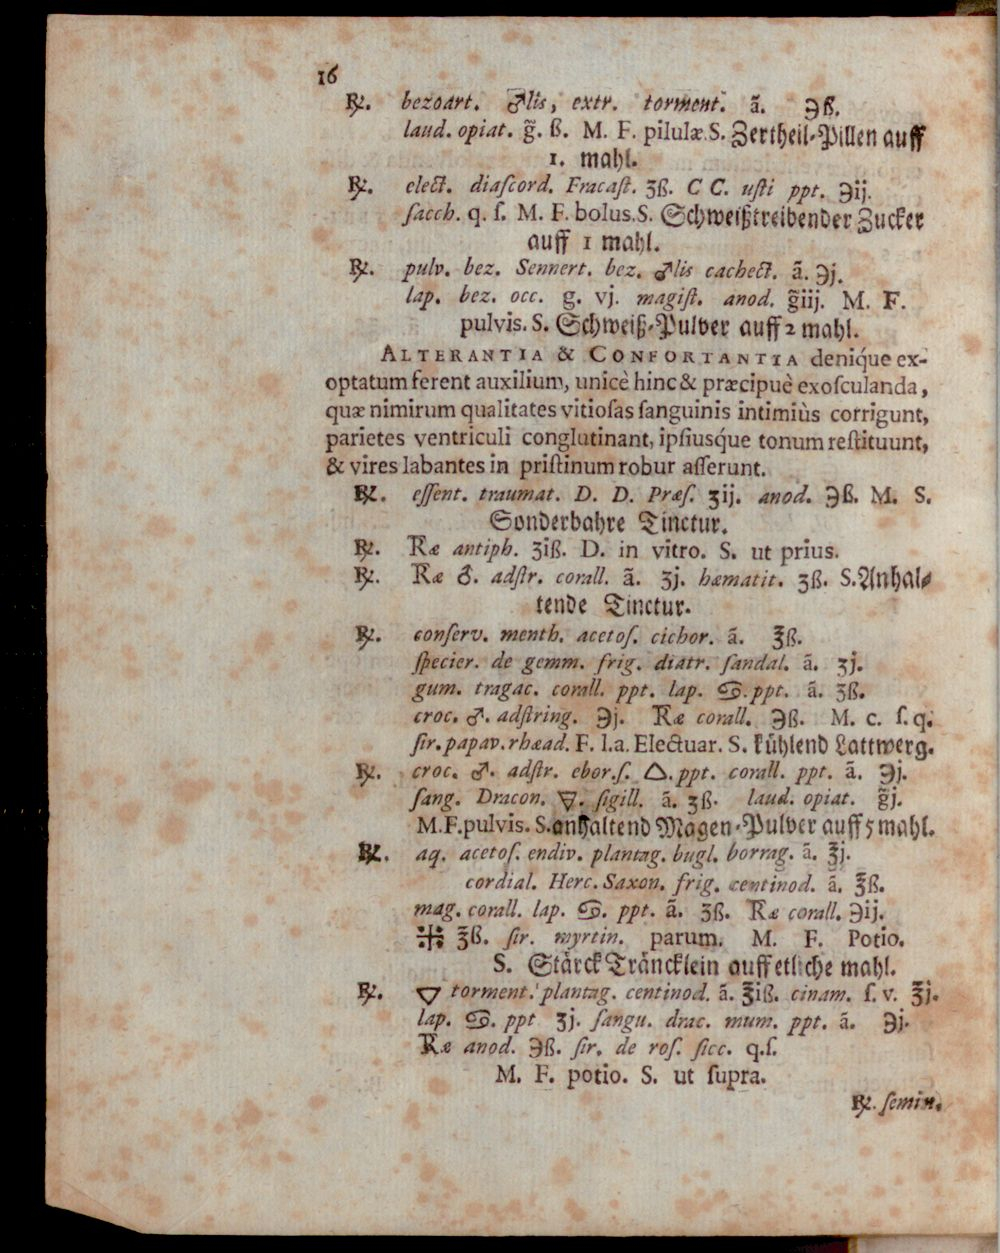 16
℞. bezoart. ♂lis, extr. torment. ã. ℈ß.
laud. opiat. g̃. ß. M. F. pilulæ. S. Zertheil-Pillen auff
1. mahl.
℞. elect. diaſcord. Fracaſt. ʒß. C C. uſti ppt. ℈ij.
ſacch. q. ſ. M. F. bolus. S. Schweißtreibender Zucker
auff 1 mahl.
℞. pulv. bez. Sennert. bez. ♂lis cachect. ã. ℈j.
lap. bez. occ. g. vj. magiſt. anod. g̃iij. M. F.
pulvis. S. Schweiß-Pulver auff 2 mahl.
ALTERANTIA & CONFORTANTIA deniq́ue ex-
optatum ferent auxilium, unicè hinc & præcipuè exoſculanda,
quæ nimirum qualitates vitioſas ſanguinis intimiùs corrigunt,
parietes ventriculi conglutinant, ipſiusq́ue tonum reſtituunt,
& vires labantes in priſtinum robur aſſerunt.
℞. eſſent. traumat. D. D. Præſ. ʒij. anod. ℈ß. M. S.
Sonderbahre Tinctur.
℞. Ræ antiph. ʒiß. D. in vitro. S. ut prius.
℞. Ræ ♂. adſtr. corall. ã. ʒj. hæmatit. ʒß. S. Anhal-
tende Tinctur.
℞. conſerv. menth. acetoſ. cichor. ã. ℥ß.
ſpecier. de gemm. frig. diatr. ſandal. ã. ʒj.
gum. tragac. corall. ppt. lap. ♋. ppt. ã. ʒß.
croc. ♂. adſtring. ℈j. Ræ corall. ℈ß. M. c. ſ. q.
ſir. papav. rhæad. F. l. a. Electuar. S. kühlend Lattwerg.
℞. croc. ♂. adſtr. ebor. ſ. 🜂. ppt. corall. ppt. ã. ℈j.
ſang. Dracon. 🜃. ſigill. ã. ʒß. laud. opiat. g̃j.
M. F. pulvis. S. anhaltend Magen-Pulver auff 5 mahl.
℞. aq. acetoſ. endiv. plantag. bugl. borrag. ã. ℥j.
cordial. Herc. Saxon. frig. centinod. ã. ℥ß.
mag. corall. lap. ♋. ppt. ã. ʒß. Ræ corall. ℈ij.
⁜ ℥ß. ſir. myrtin. parum. M. F. Potio.
S. Stärck Träncklein auff etliche mahl.
℞. 🜄 torment. plantag. centinod. ã. ℥iß. cinam. ſ. v. ℥j.
lap. ♋. ppt ʒj. ſangu. drac. mum. ppt. ã. ℈j.
Ræ anod. ℈ß. ſir. de roſ. ſicc. q. ſ.
M. F. potio. S. ut ſupra.
℞. ſemin.